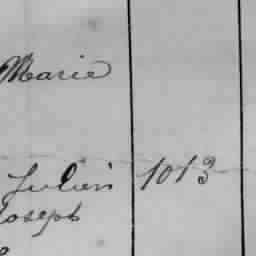 Marie
Julien 1013
Joseph